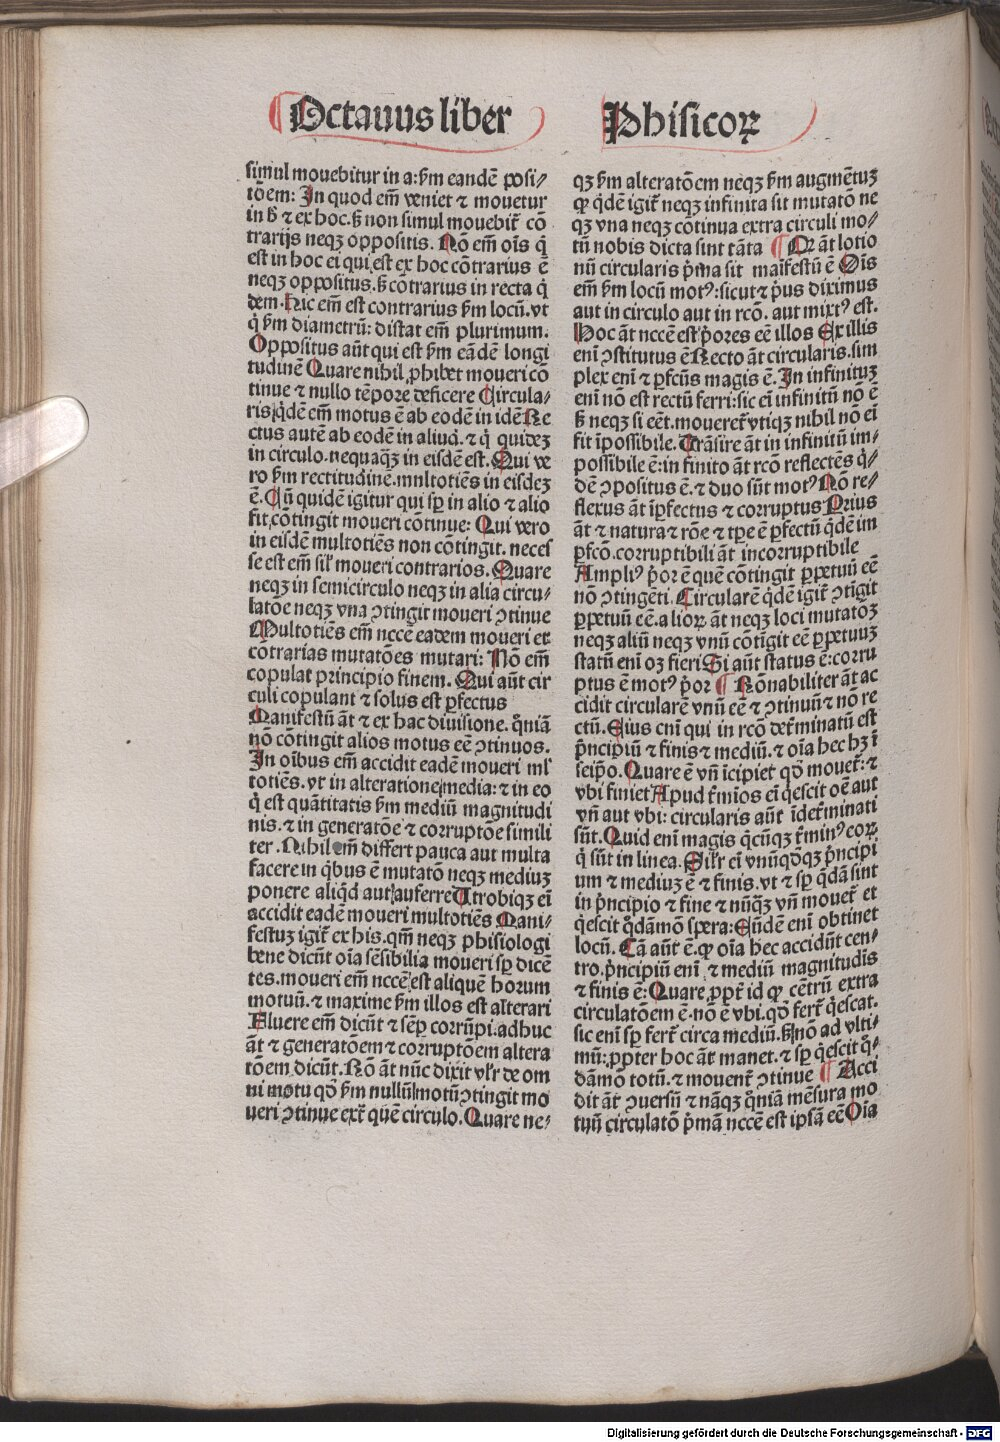 Octauus liber
simul mouebitur in a: ẜm eandē posi⸗
tōem: In quod em̄ veniet ⁊ mouetur
in b̄ ⁊ ex hoc. ẜꝫ non simul mouebit᷑ cō
trarijs neqꝫ oppositis. Nō em̄ oīs q̇
est in hoc ei qui est ex hoc cōtrarius ē
neqꝫ oppositus. ẜꝫ cōtrarius in recta q̇
dem. Hic em̄ est contrarius ẜm locū. vt
q̇ ẜm diametrū: distat em̄ plurimum.
Oppositus aūt qui est ẜm eādē longi
tudinē Quare nihil ꝓhibet moueri cō
tinue ⁊ nullo tēpore deficere Circula⸗
ris q̇dē em̄ motus ē ab eodē in idē Re
ctus autē ab eodē in aliud. ⁊ q̇ quideꝫ
in circulo. nequaqꝫ in eisdē est. Qui ve
ro ẜm rectitudinē. multotiēs in eisdeꝫ
ē. Cū quidē igitur qui sꝑ in alio ⁊ alio
fit, cōtingit moueri cōtinue: Qui vero
in eisdē multotiēs non cōtingit. neces
se est em̄ sil᷑ moueri contrarios. Quare
neqꝫ in semicirculo neqꝫ in alia circu⸗
latōe neqꝫ vna ↄtingit moueri ↄtinue
Multotiēs em̄ nccē eadem moueri et
cōtrarias mutatōes mutari: Nō em̄
copulat principio finem. Qui aūt cir
culi copulant ⁊ solus est ꝑfectus
Manifestū āt ⁊ ex hac diuisione. qͦniā
nō cōtingit alios motus eē ↄtinuos.
In oībus em̄ accidit eadē moueri ml᷑
totiēs. vt in alteratione media: ⁊ in eo
q̇ est quātitatis ẜm mediū magnitudi
nis. ⁊ in generatōe ⁊ corruptōe simili
ter. Nihil em̄ differt pauca aut multa
facere in qͥbus ē mutatō neqꝫ mediuꝫ
ponere aliqd̄ aut auferre Utrobiqꝫ ei
accidit eadē moueri multotiēs Mani⸗
festuꝫ igit᷑ ex his. qm̄ neqꝫ phisiologi
bene dicūt oīa sēsibilia moueri sꝑ dicē
tes. moueri em̄ nccē est aliquē horum
motuū. ⁊ maxime ẜm illos est alterari
Fluere em̄ dicūt ⁊ sēꝑ corrūpi. adhuc
āt ⁊ generatōem ⁊ corruptōem altera
tōem dicūt. Rō āt nūc dixit vl᷑r de om
ni motu qd̄ ẜm nullū motū ↄtingit mo
ueri ↄtinue ext᷑ quē circulo. Quare ne⸗
Phisicoꝝ
qꝫ ẜm alteratōem neqꝫ ẜm augmētuꝫ
ꝙ q̇dē igit᷑ neqꝫ infinita sit mutatō ne
qꝫ vna neqꝫ cōtinua extra circuli mo⸗
tū nobis dicta sint tāta Qꝛ āt lotio
nū circularis pͥma sit maīfestū ē Oīs
em̄ ẜm locū motꝰ: sicut ⁊ pͥus diximus
aut in circulo aut in rcō. aut mixtꝰ est.
Hoc āt nccē est pͥores eē illos Ex illis
enī ↄstitutus ē Recto āt circularis. sim
plex enī ⁊ ꝑfcūs magis ē. In infinituꝫ
enī nō est rectū ferri: sic ei infinitū nō ē
ẜꝫ neqꝫ si eēt. moueret᷑ vtiqꝫ nihil nō ei
fit īpossibile. Trāsire āt in infinitū im⸗
possibile ē: in finito āt rcō reflectēs q̇⸗
dē ↄpositus ē. ⁊ duo sūt motꝰ Nō re⸗
flexus āt īꝑfectus ⁊ corruptus Prius
āt ⁊ natura ⁊ rōe ⁊ tꝑe ē ꝑfectū q̇dē im
ꝑfcō. corruptibili āt incorruptibile
Ampliꝰ pͥor ē quē cōtingit ꝑpetuū eē
nō ↄtingēti. Circularē q̇dē igit᷑ ↄtigit
ꝑpetuū eē. alioꝝ āt neqꝫ loci mutatōꝫ
neqꝫ aliū neqꝫ vnū cōtigit eē ꝑpetuuꝫ
statū enī oꝫ fieri Si aūt status ē: corru
ptus ē motꝰ pͥor Rōnabiliter āt ac
cidit circularē vnū eē ⁊ ↄtinuū ⁊ nō re
ctū. Eius enī qui in rcō det᷑minatū est
pͥncipiū ⁊ finis ⁊ mediū. ⁊ oīa hec hꝫ ī
seip̄o. Quare ē vn̄ īcipiet qd̄ mouet᷑: ⁊
vbi finiet Apud t᷑mīos ei q̇escit oē aut
vn̄ aut vbi: circularis aūt īdet᷑minati
sūt. Quid enī magis q̄cūqꝫ t᷑minꝰ eoꝝ
q̇ sūt in linea. Sil᷑r ei vnūqd̄qꝫ pͥncipi
um ⁊ mediuꝫ ē ⁊ finis. vt ⁊ sꝑ q̇dā sint
in pͥncipio ⁊ fine ⁊ nūqꝫ vn̄ mouet᷑ et
q̇escit qͦdāmō spera: Eūdē enī obtinet
locū. Cā aūt ē. ꝙ oīa hec accidūt cen⸗
tro. pͥncipiū enī ⁊ mediū magnitudīs
⁊ finis ē: Quare ꝓpt᷑ id ꝙ cētrū extra
circulatōem ē. nō ē vbi. qd̄ fert᷑ q̇escat.
sic enī sꝑ fert᷑ circa mediū. ẜꝫ nō ad vlti⸗
mū: ꝓpter hoc āt manet. ⁊ sꝑ q̇escit qͦ⸗
dāmō totū. ⁊ mouent᷑ ↄtinue Acci
dit āt ↄuersū ⁊ nāqꝫ qͦniā mēsura mo
tuū circulatō pͥmā nccē est ip̄ā eē Oīa
Digitalisierung gefördert durch die Deutsche Forschungsgemeinschaft - DFG